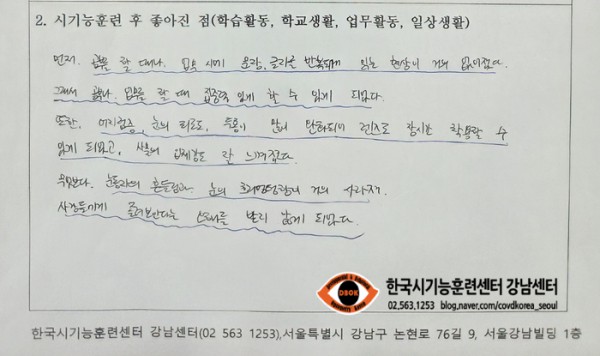 2. 시기능훈련 후 좋아진 점(학습활동, 학교생활, 업무활동, 일상생활)
먼저, 공부를 할 때나, 업무 시에 문장, 글자를 반복되게 읽는 현상이 거의 없어졌다.
그래서 공부나, 업무를 할 때 집중력 있게 할 수 있게 되었다.
또한, 어지럼증, 눈의 피로도, 두통이 많이 완화되어 렌즈도 장시간 착용할 수
있게 되었고, 사물의 입체감도 잘 느껴졌다.
무엇보다, 눈동자의 흔들림과 눈의 거의 사라져
사람들에게 째려본다는 소리를 받지 않게 되었다.
DBOK
한국시기능훈련센터 강남센터
02.563.1253 blog.naver.com/covdkorea_seoul
한국시기능훈련센터 강남센터(02 563 1253),서울특별시 강남구 논현로 76길 9, 서울강남빌딩 1층